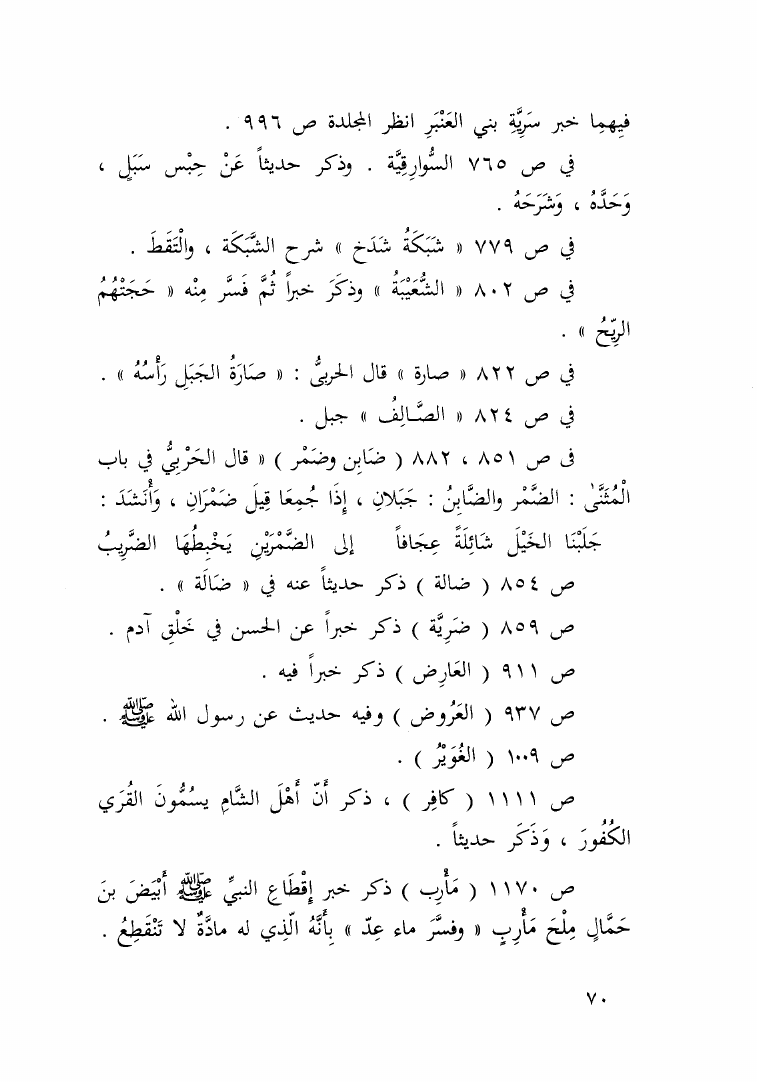 فيهما خبر سَرِيَّةِ بني العَنْبَرِ انظر المجلدة ص ٩٩٦ .
في ص ٧٦٥ السُّوارِقِيَّة . وذكر حديثاً عَنْ حِبْس سَبَلٍ ،
وَحَدَّهُ ، وَشَرَحَهُ .
في ص ٧٧٩ « شَبَكَةُ شَدَخ » شرح الشَّبَكَة ، والْتَقَطَ .
في ص ٨٠٢ « الشُّعَيْبَةُ » وذكَرَ خبراً ثُمَّ فَسَّر مِنْه « حَجَتْهُمُ
الرِّيْحُ » .
في ص ٨٢٢ « صارة » قال الحربىُّ : « صَارَةُ الجَبَلِ رَأْسُهُ » .
في ص ٨٢٤ « الصَّالِفُ » جبل .
فى ص ٨٥١ ، ٨٨٢ ( ضَابِن وضَمْر ) « قال الحَرْبِيُّ في باب
الْمُثَنَّىٰ : الضَّمْر والضَّابِنُ : جَبَلانِ ، إِذَا جُمِعَا قِيلَ ضَمْرَانِ ، وَأَنْشَدَ :
جَلَبْنَا الخَيْلَ شَائِلَةً عِجَافاً إلى الضَّمْرَيْنِ يَخْبِطُهَا الضَّرِيبُ
ص ٨٥٤ ( ضالة ) ذكر حديثاً عنه في « ضَالَة » .
ص ٨٥٩ ( ضَرِيَّة ) ذكر خبراً عن الحسن في خَلْقِ آدم .
ص ٩١١ ( العَارِض ) ذكر خبراً فيه .
ص ٩٣٧ ( العَرُوض ) وفيه حديث عن رسول الله ﷺ .
ص ١٠٠٩ ( الغُوَيْرُ ) .
ص ١١١١ ( كافِر ) ، ذكر أَنّ أَهْلَ الشَّامِ يسُمُّونَ القُرَي
الكُفُورَ ، وَذَكَر حديثاً .
ص ١١٧٠ ( مَأْرِب ) ذكر خبر إِقْطَاعِ النبيِّ ﷺ أَبْيَضَ بنَ
حَمَّالٍ مِلْحَ مَأْرِبٍ « وفسَّرَ ماء عِدّ » بِأَنَّهُ الّذِي له مادَّةٌ لا تَنْقَطِعُ .
٧٠